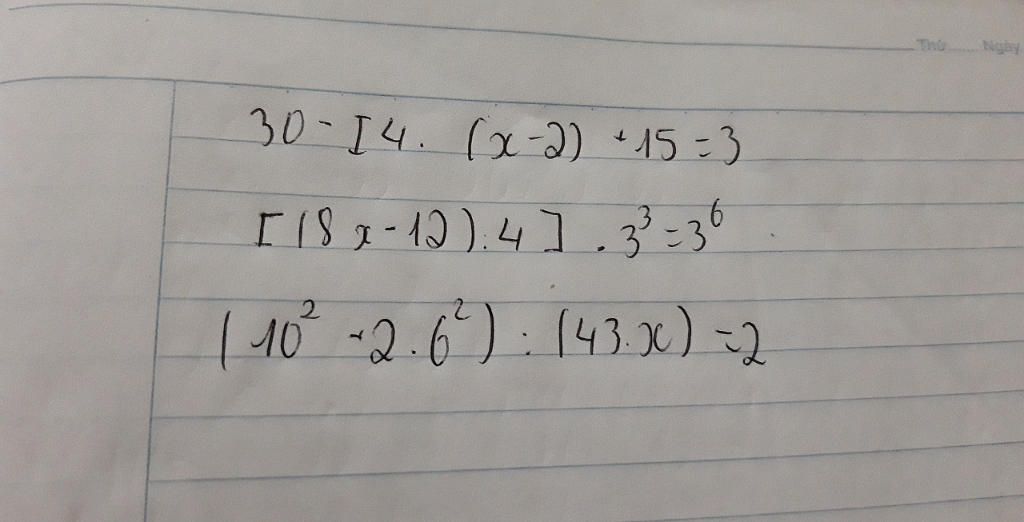 Thứ Ngày
30 - [4. (x-2) +15 = 3
[(8x-12):4] . 3³ = 3⁶
(10² + 2.6²) : (43.x) = 2